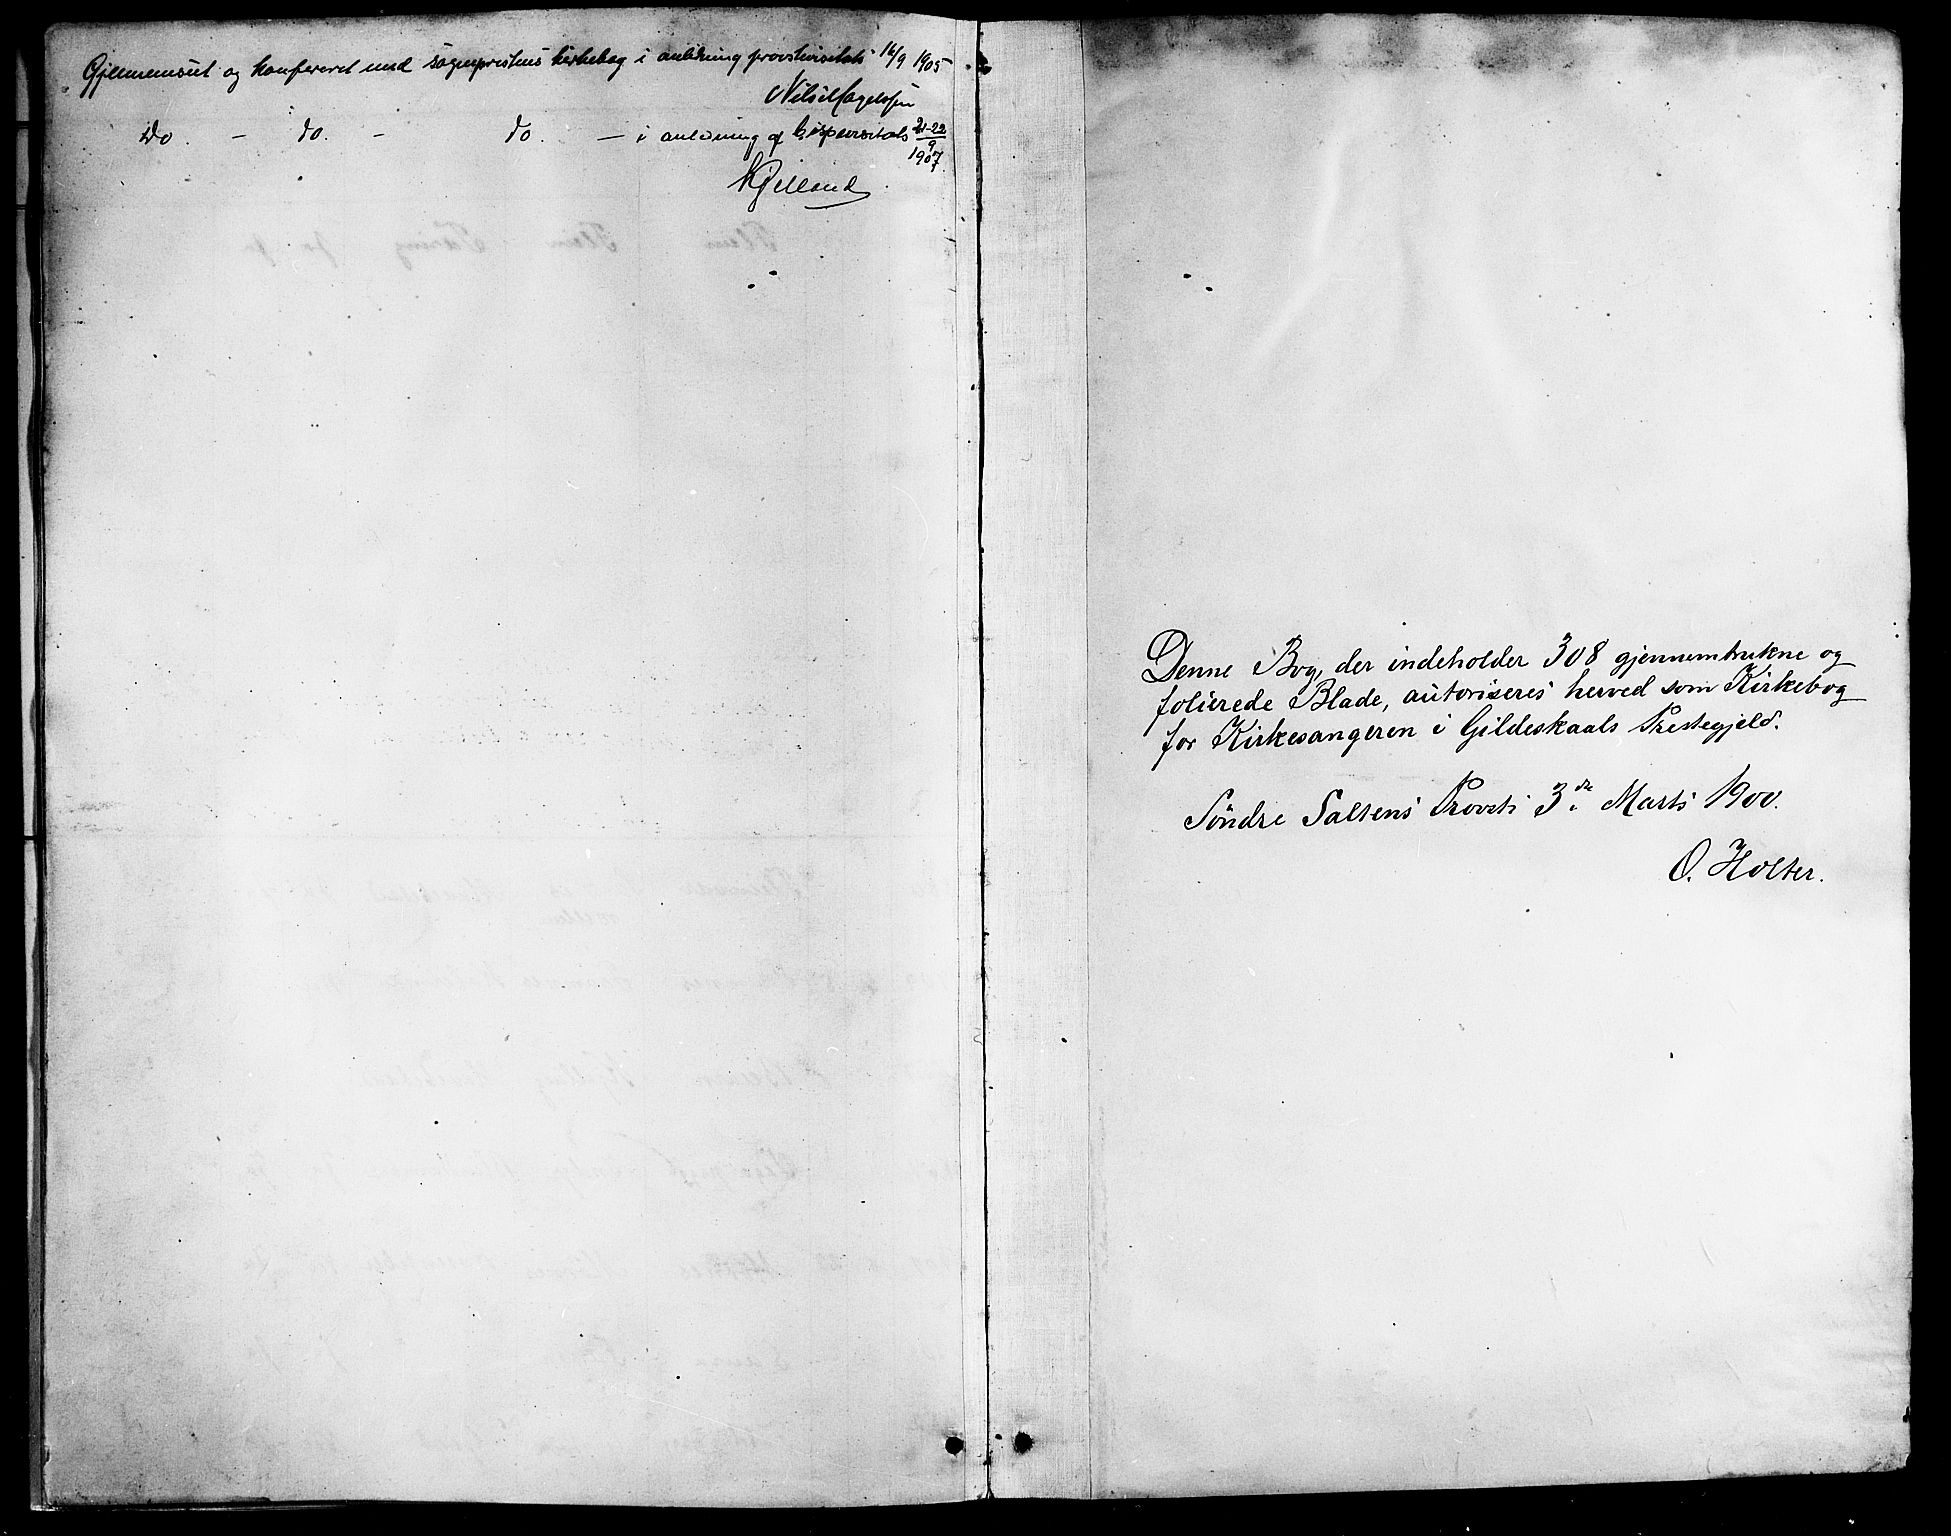 Gjennemseet og konfereret med sogneprestens kirkebog i anledning provstevisitats 16/9 1905
Do. - do. - do. - i anledning af bispevisitats 21-22/9 1907.
Denne Bog, der indeholder 308 gjennemtrukne og
folierede Blade, autoriseres herved som Kirkebog
for Kirkesangeren i Gildeskaals Prestegjeld.
Søndre Saltens Provsti 3de Marts 1900.
O. Holter.